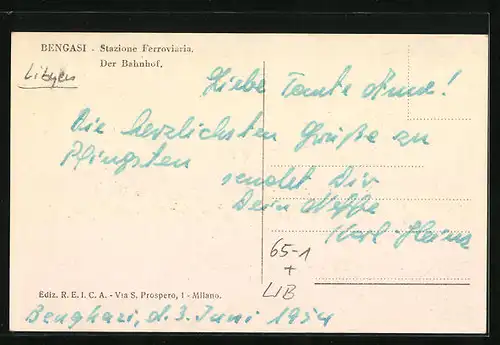 BENGASI - Stazione Ferroviaria.
Der Bahnhof.
Libyen
Liebe Tante Anne!
Die herzlichsten Grüße an
Pfingsten
sendet Dir
Dein Neffe
Karl-Heinz
65-1
+
LIB
Ediz. R. E. I. C. A. - Via S. Prospero, 1 - Milano.
Benghazi, d. 3. Juni 1954